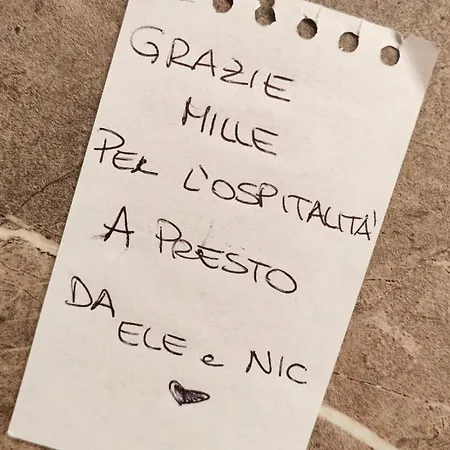 GRAZIE
MILLE
PER L'OSPITALITÀ
A PRESTO
DA
ELE e NIC